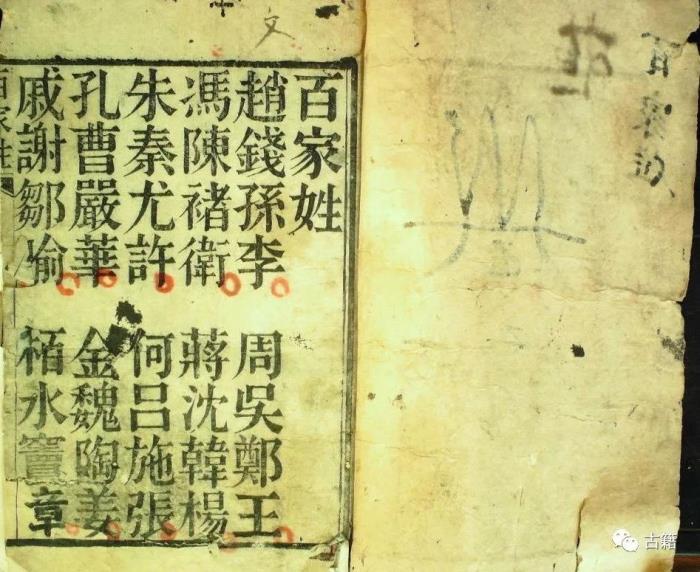 百家姓
趙錢孫李 周吳鄭王
馮陳褚衛 蔣沈韓楊
朱秦尤許 何呂施張
孔曹嚴華 金魏陶姜
戚謝鄒喻 栢水竇章
百家姓
文
古籍